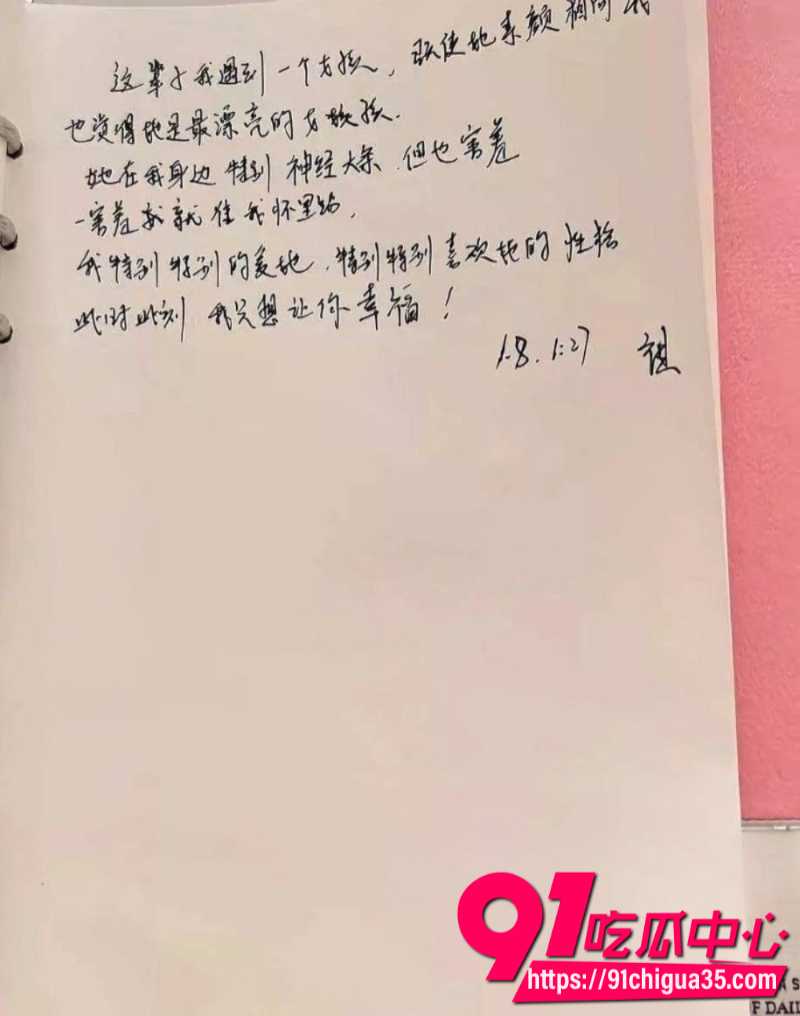 这辈子我遇到一个女孩,即使她素颜相向我
也觉得她是最漂亮的女孩孩.
她在我身边 特别 神经大条.但也害羞
一害羞就 就往我怀里钻,
我特别特别的爱她.特别特别喜欢她的性格
此时此刻 我只想让你幸福!
1.8. 1:27
91吃瓜中心
https://91chigua35.com
F DAIL